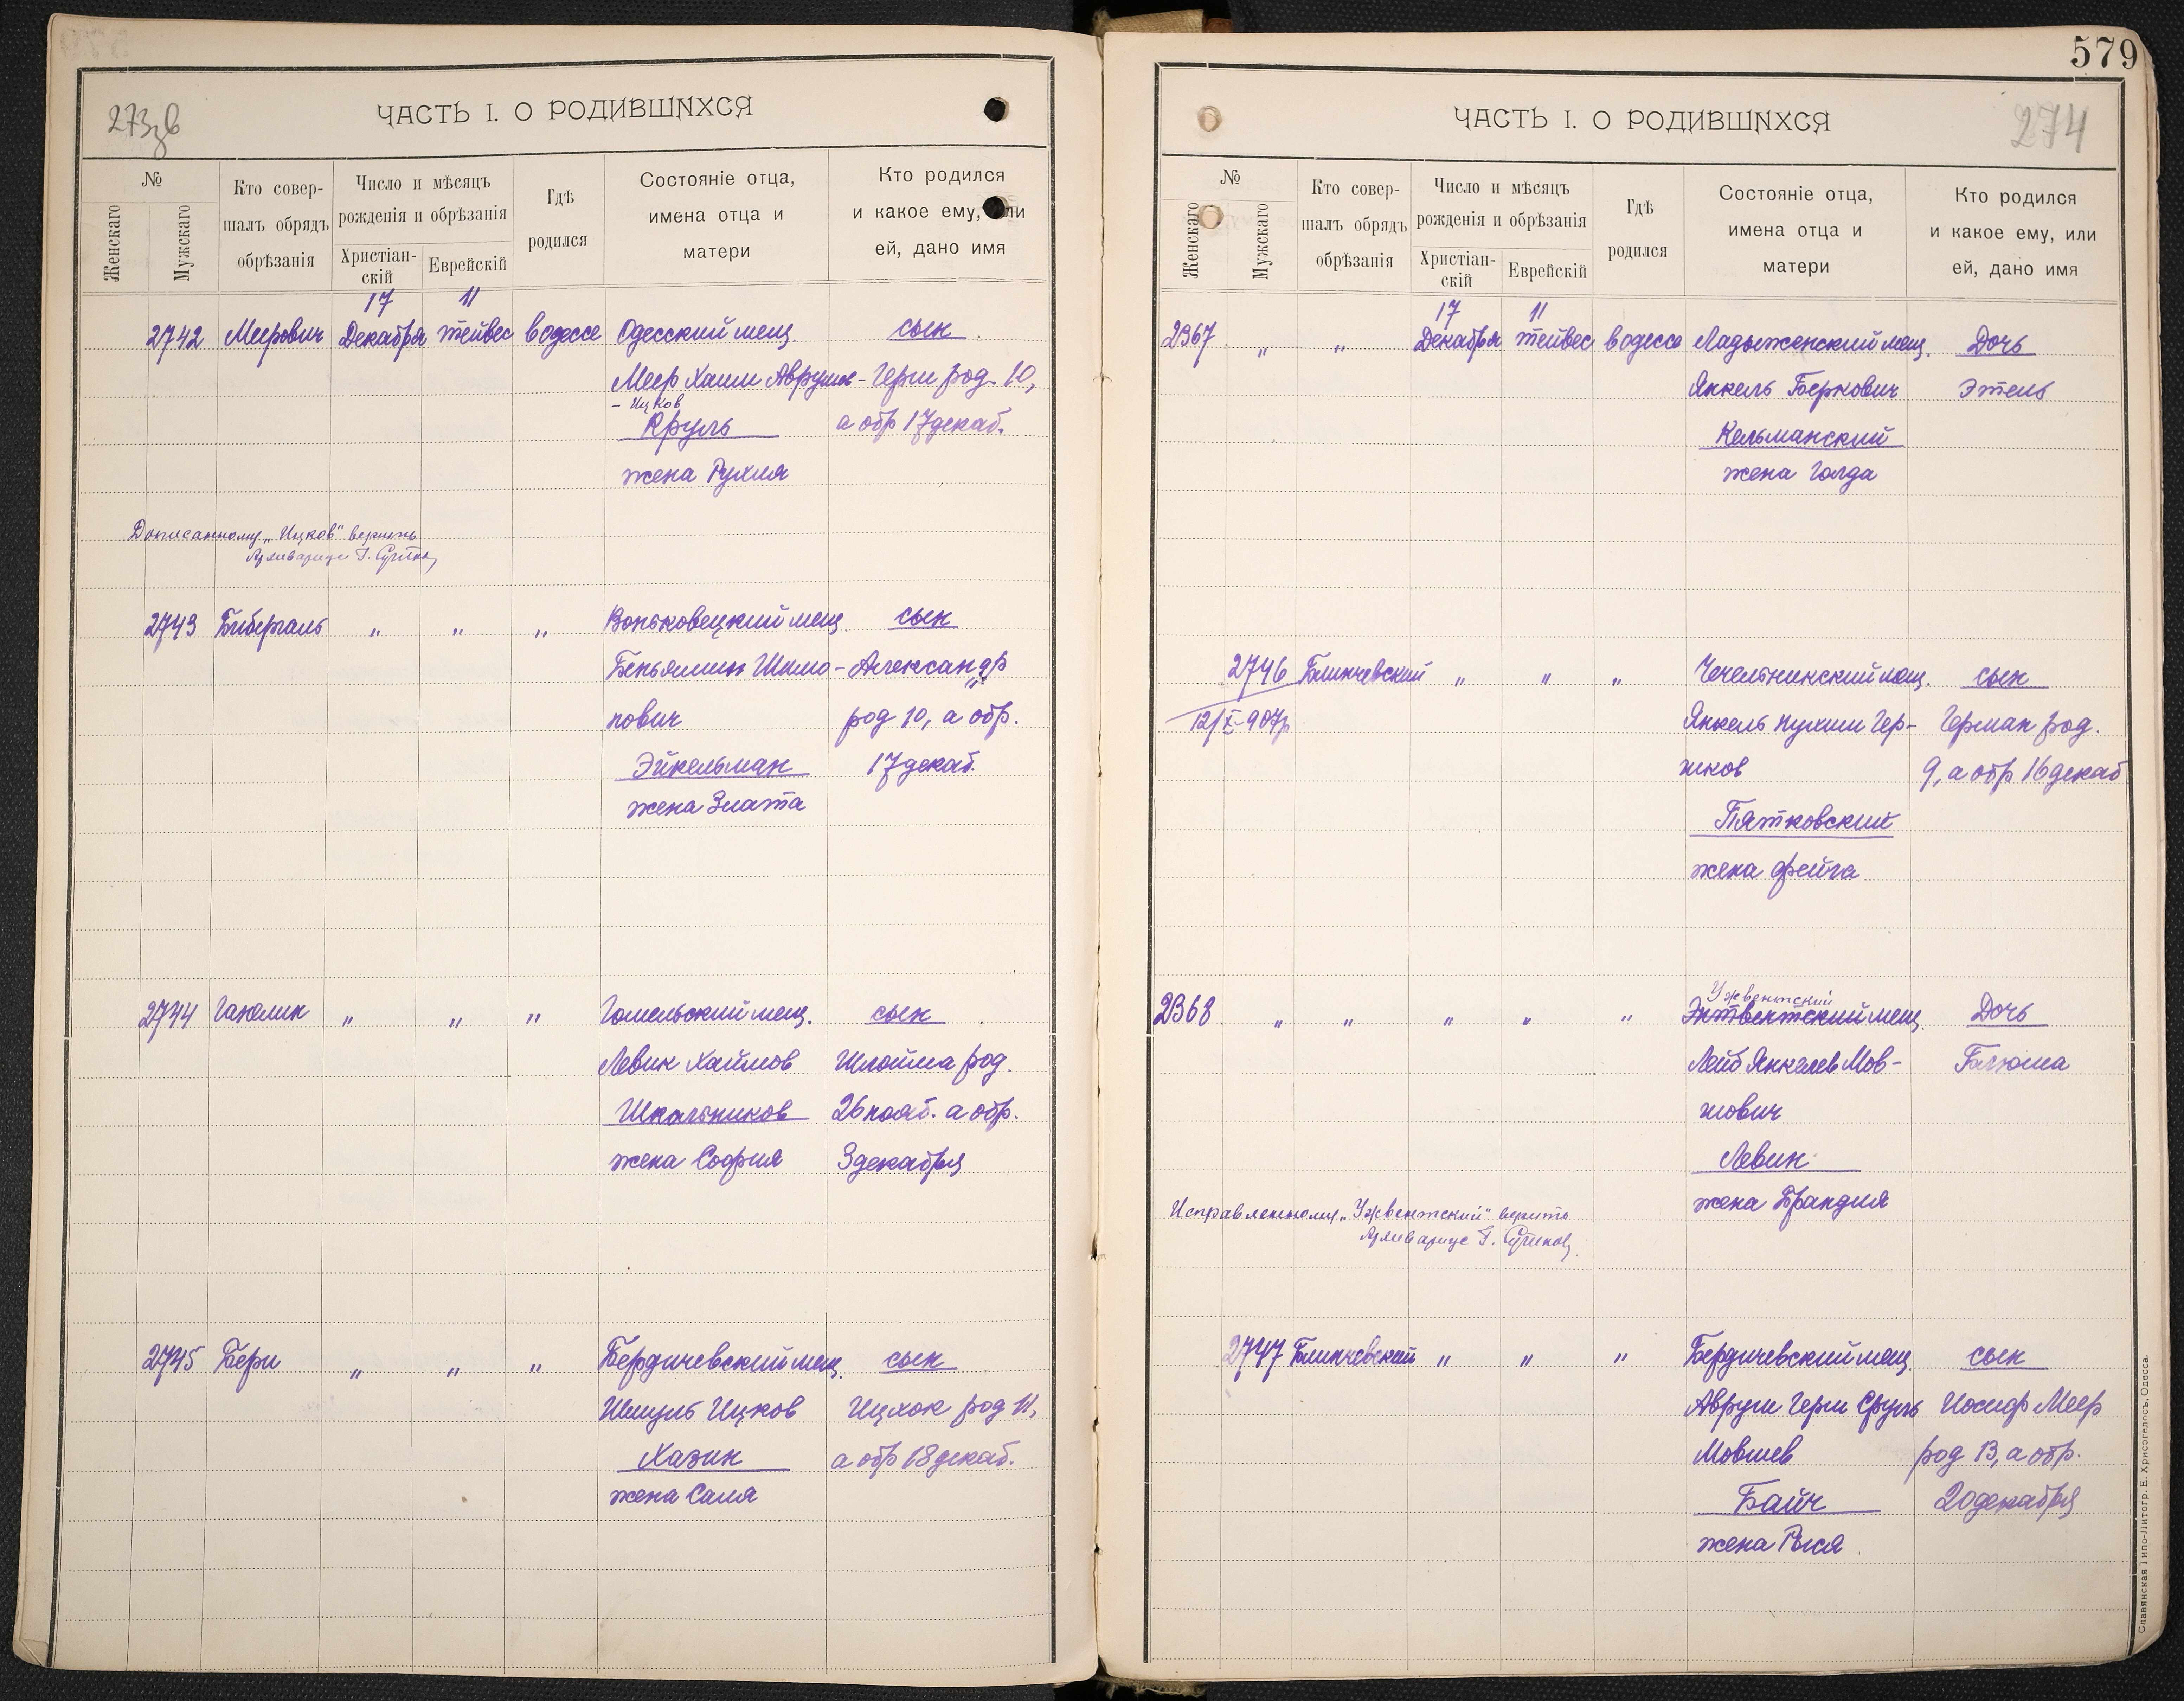 273 зв
ЧАСТЬ I. О РОДИВШИХСЯ
№
Женскаго
Мужскаго
Кто совер-
шалъ обрядъ
обрѣзанія
Число и мѣсяцъ
рожденія и обрѣзанія
Христіан-
скій
Еврейскій
Гдѣ
родился
Состояніе отца,
имена отца и
матери
Кто родился
и какое ему, или
ей, дано имя
17 11
2742 Меерович Декабря тейвес в одессе Одесский мещ. сын
Меер Хаим Аврумов - Герш род. 10,
- Ицков
Круль а обр 17 декаб.
жена Рухля
Дописанному „Ицков" верить
Архивариус
2743 Бибергаль " " " Воньковецкий мещ. сын
Беньямин Шимо- Александр
нович род 10, а обр.
Эйкельман 17 декаб.
жена Злата
2744 Гакелик " " " Гомельский мещ. сын
Левик Хаймов Шлойма род.
Школьников 26 нояб. а обр.
жена София 3 декабря
2745 Бери " " " Бердичевский мещ. сын
Шмуль Ицков Ицхок род 11,
Хазин а обр 18 декаб.
жена Саля
579
274
ЧАСТЬ I. О РОДИВШИХСЯ
№
Женскаго
Мужскаго
Кто совер-
шалъ обрядъ
обрѣзанія
Число и мѣсяцъ
рожденія и обрѣзанія
Христіан-
скій
Еврейскій
Гдѣ
родился
Состояніе отца,
имена отца и
матери
Кто родился
и какое ему, или
ей, дано имя
17 11
2367 " " Декабря тейвес в одессе Ладыженский мещ. Дочь
Янкель Беркович Этель
Кельманский
жена Голда
2746 Блинчевский " " " Чечельникский мещ. сын
12/X-907г Янкель Нухим Гер- Герман род.
шков 9, а обр 16 декаб
Пятковский
жена Фейга
Ужвентский
2368 " " " " " Эктвентский мещ. Дочь
Лейб Янкелев Мов- Блюма
шович
Левин
жена Брандля
Исправленному „Ужвентский" верить
Архивариус
2747 Блинчевский " " " Бердичевский мещ. сын
Аврум Герш Сруль Иосиф Меер
Мовшев род 13, а обр.
Байч 20 декабря
жена Рыся
Славянская Типо-Литогр. Е. Хрисогелосъ, Одесса.